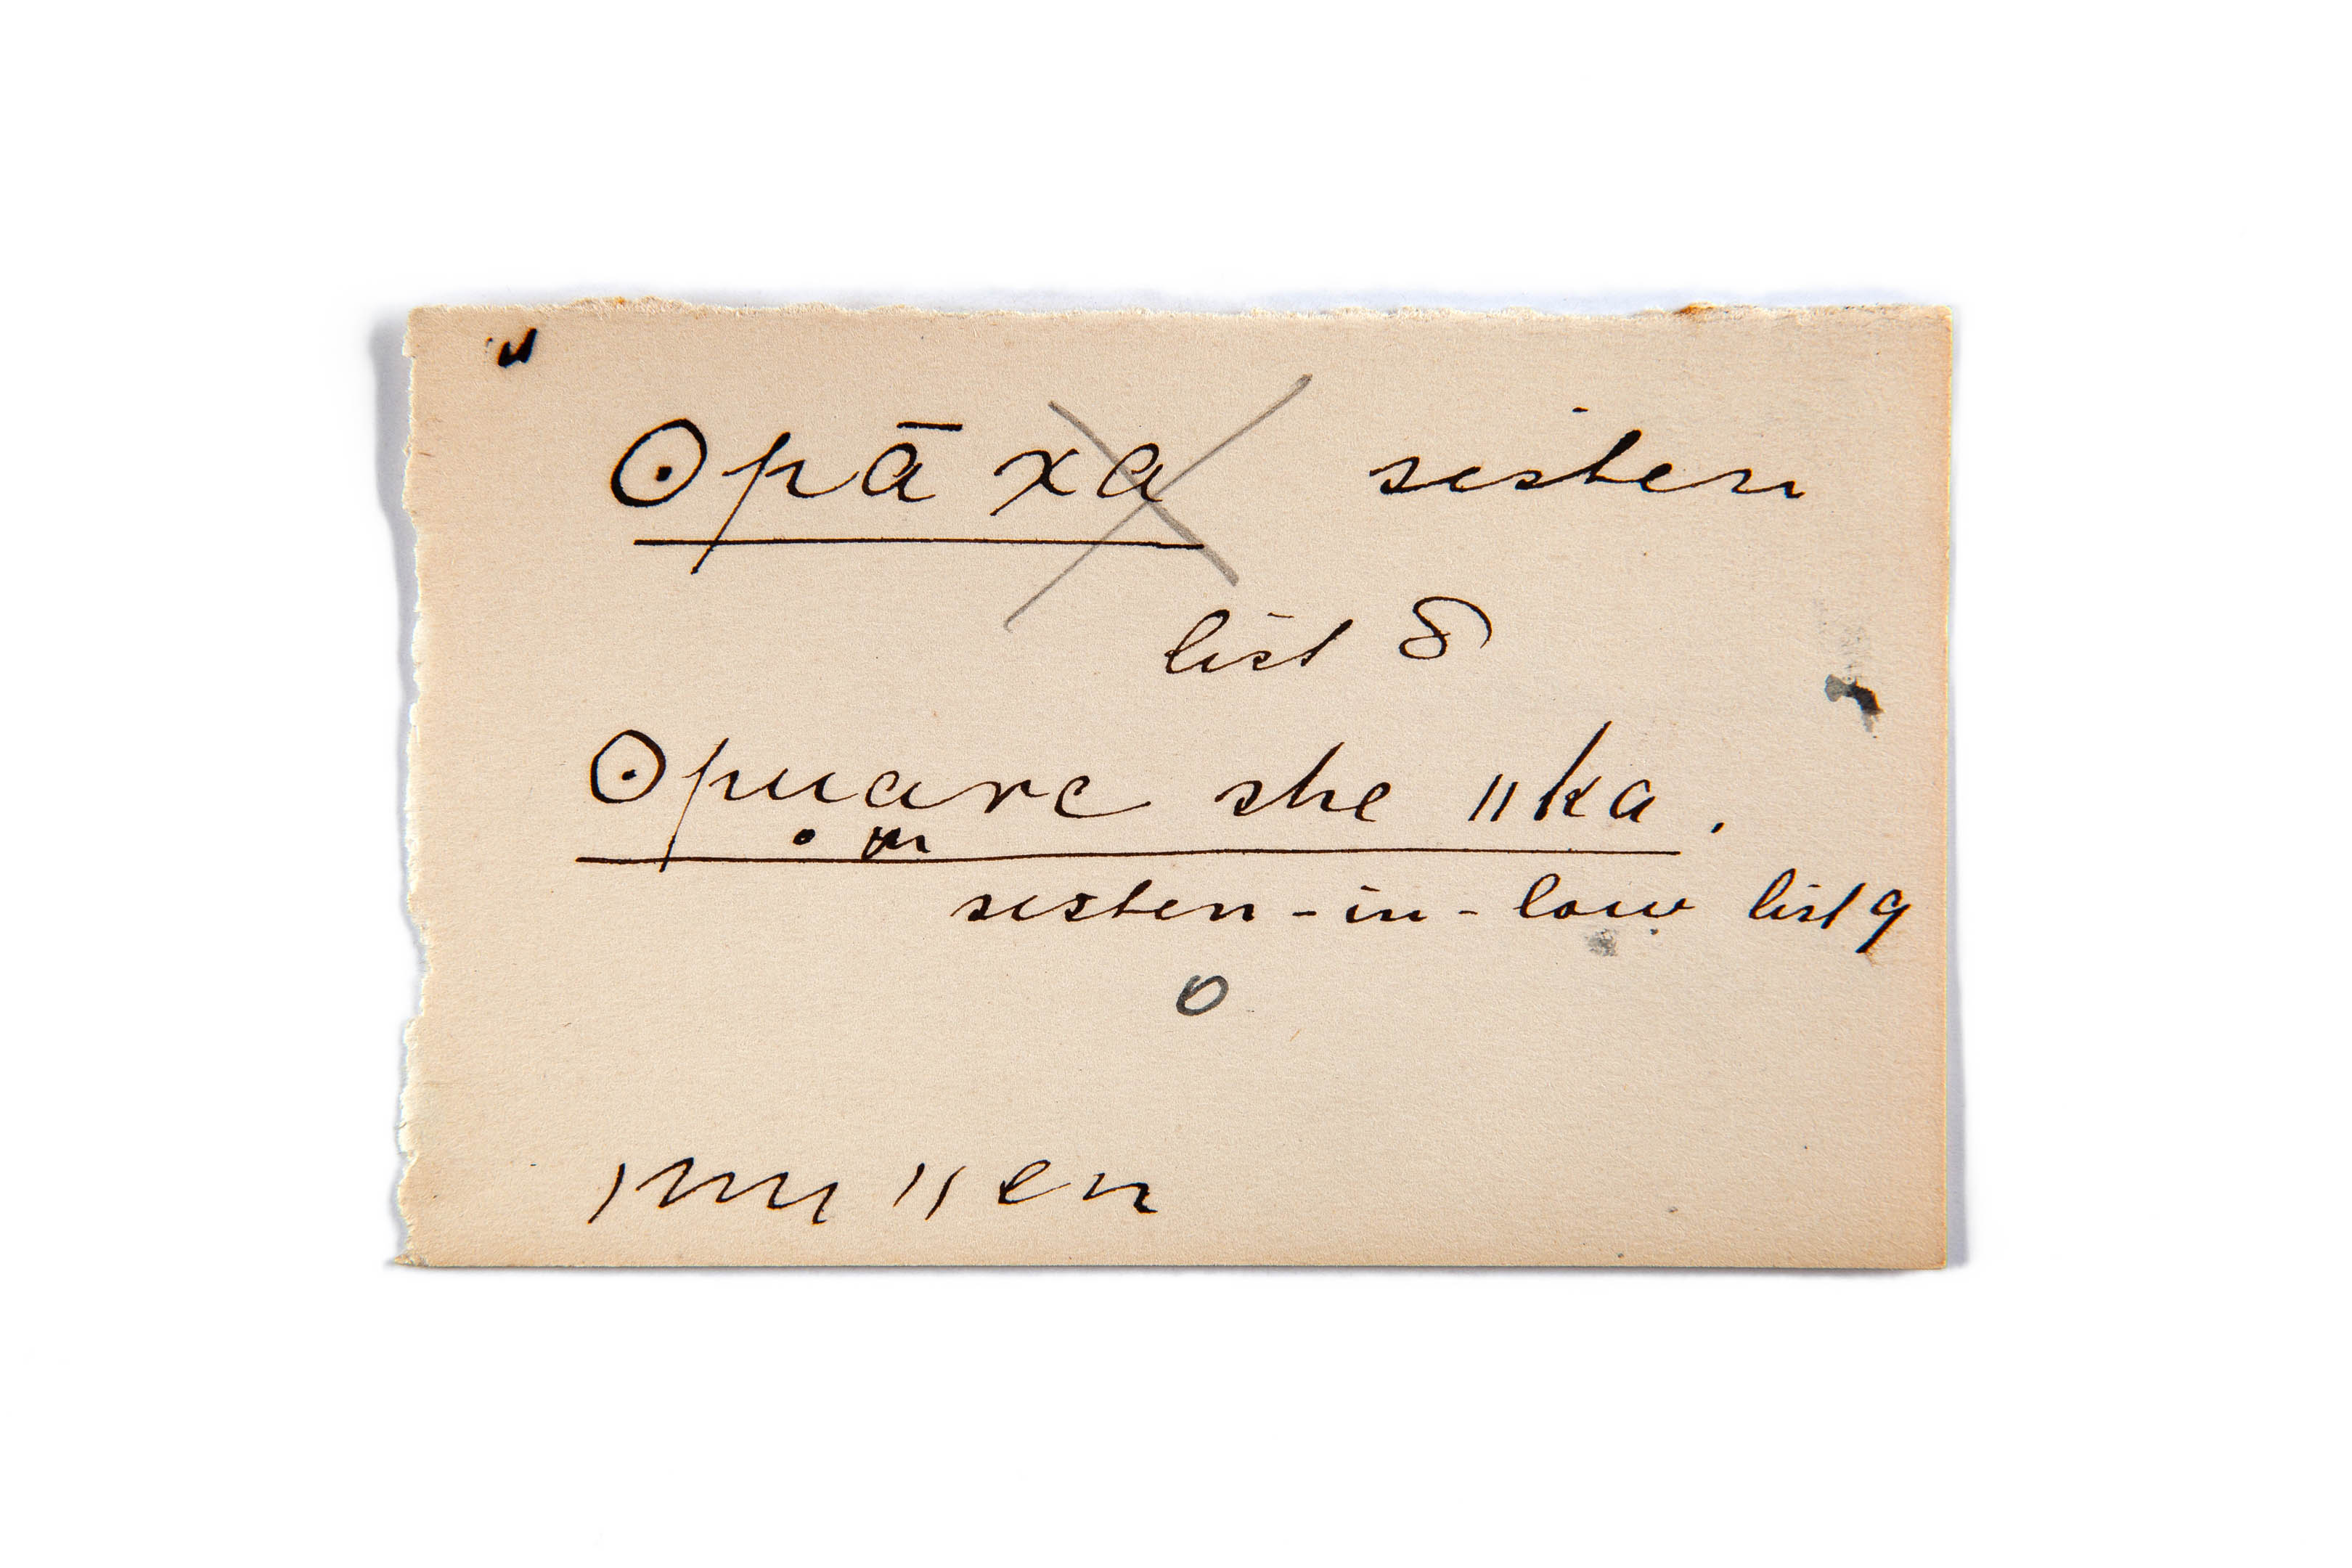 ʘpāxa sister
list 8
ʘpuarc she ǁka.
sister-in-law list 9
0
ǀnu ǁen